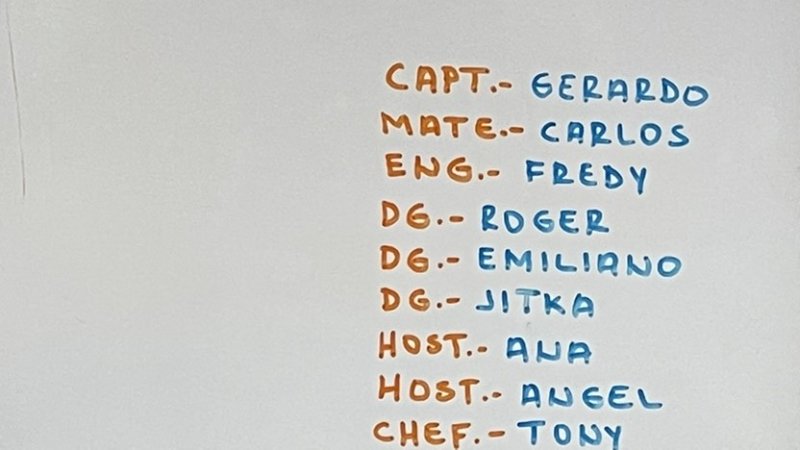 CAPT.- GERARDO
MATE.- CARLOS
ENG.- FREDY
DG.- ROGER
DG.- EMILIANO
DG.- JITKA
HOST.- ANA
HOST.- ANGEL
CHEF.- TONY